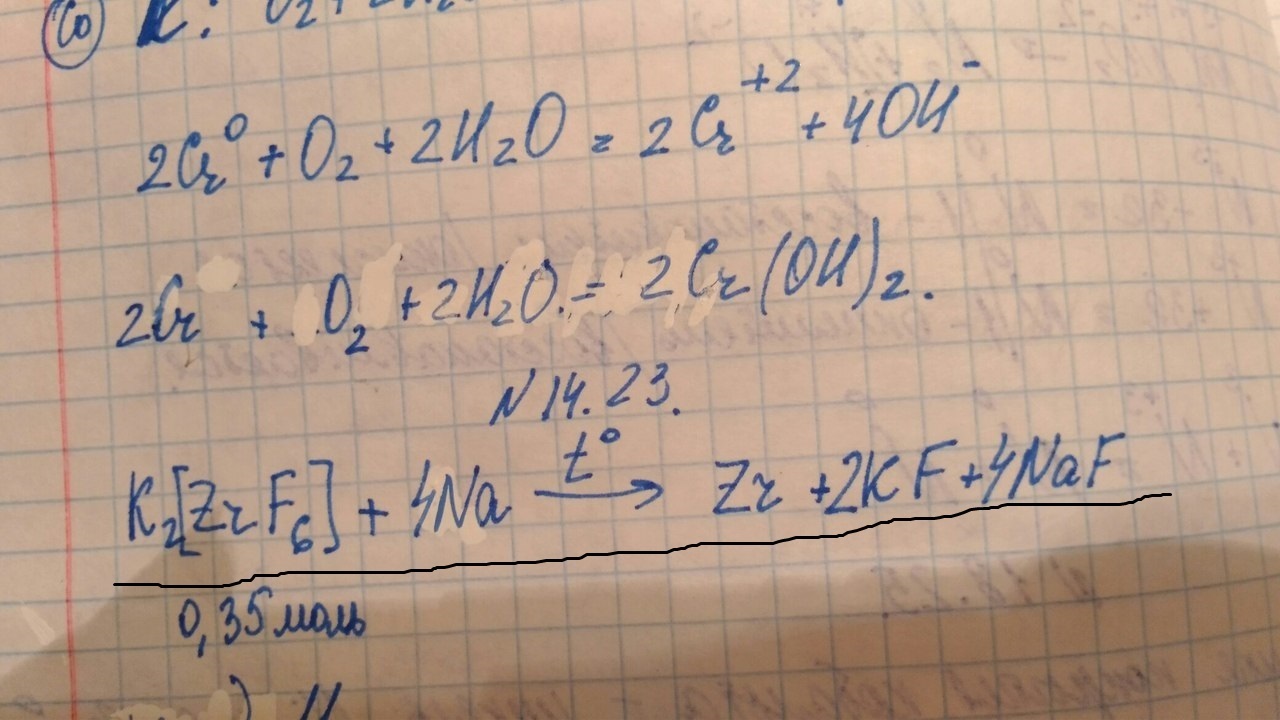 2Cr⁰ + O₂ + 2H₂O = 2Cr⁺² + 4OH⁻
2Cr + O₂ + 2H₂O = 2Cr(OH)₂.
N 14.23.
K₂[ZrF₆] + 4Na t°⟶ Zr + 2KF + 4NaF
0,35 моль